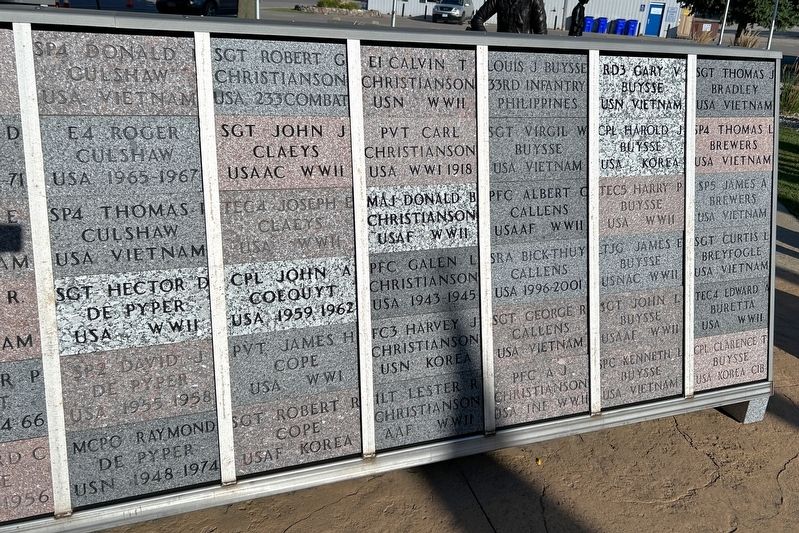 D
71
E
AM
R
AM
R P
T
4 66
RD C
1956
SP4 DONALD
CULSHAW
USA VIETNAM
E4 ROGER
CULSHAW
USA 1965-1967
SP4 THOMAS
CULSHAW
USA VIETNAM
SGT HECTOR D
DE PYPER
USA WWII
SP2 DAVID J
DE PYPER
USA 1955-1958
MCPO RAYMOND
DE PYPER
USN 1948-1974
SGT ROBERT G
CHRISTIANSON
USA 233COMBAT
SGT JOHN J
CLAEYS
USAAC WWII
TEC4 JOSEPH E
CLAEYS
USA WWII
CPL JOHN A
COEQUYT
USA 1959 1962
PVT JAMES H
COPE
USA WWI
SGT ROBERT R
COPE
USAF KOREA
E1 CALVIN T
CHRISTIANSON
USN WWII
PVT CARL
CHRISTIANSON
USA WWI 1918
MAJ DONALD B
CHRISTIANSON
USAF WWII
PFC GALEN L
CHRISTIANSON
USA 1943-1945
FC3 HARVEY J
CHRISTIANSON
USN KOREA
1LT LESTER R
CHRISTIANSON
AAF WWII
LOUIS J BUYSSE
33RD INFANTRY
PHILIPPINES
SGT VIRGIL W
BUYSSE
USA VIETNAM
PFC ALBERT C
CALLENS
USAAF WWII
SRA BICK-THUY
CALLENS
USA 1996-2001
SGT GEORGE R
CALLENS
USA VIETNAM
PFC A J
CHRISTIANSON
USA INF WWII
RD3 GARY V
BUYSSE
USN VIETNAM
CPL HAROLD J
BUYSSE
USA KOREA
TEC5 HARRY P
BUYSSE
USA WWII
LTJG JAMES E
BUYSSE
USNAC WWII
SGT JOHN L
BUYSSE
USAAF WWII
SPC KENNETH L
BUYSSE
USA VIETNAM
SGT THOMAS J
BRADLEY
USA VIETNAM
SP4 THOMAS L
BREWERS
USA VIETNAM
SP5 JAMES A
BREWERS
USA VIETNAM
SGT CURTIS L
BREYFOGLE
USA VIETNAM
TEC4 EDWARD A
BURETTA
USA WWII
CPL CLARENCE T
BUYSSE
USA KOREA CIB